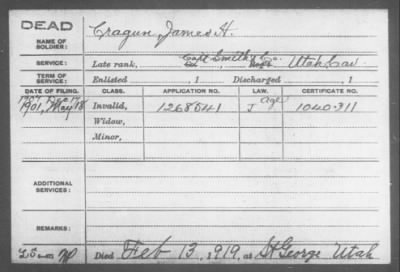 DEAD
NAME OF SOLDIER: Cragun, James H.
SERVICE: Late rank, Capt Smith's Co. Utah Cav
TERM OF SERVICE: Enlisted , 1 Discharged , 1
DATE OF FILING. CLASS. APPLICATION NO. LAW. CERTIFICATE NO.
1901, May 18 Invalid, 1268541 J Age 1040311
Widow,
Minor,
ADDITIONAL SERVICES:
REMARKS:
Died Feb 13, 1919, at St George Utah